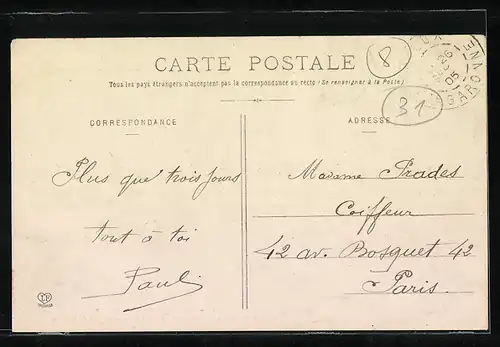 CARTE POSTALE
8
Tous les pays étrangers n'acceptent pas la correspondance au recto (Se renseigner à la Poste)
31
CORRESPONDANCE
ADRESSE
Plus que trois jours
tout à toi
Paul
Madame Prades
Coiffeur
42 av. Bosquet 42
Paris.